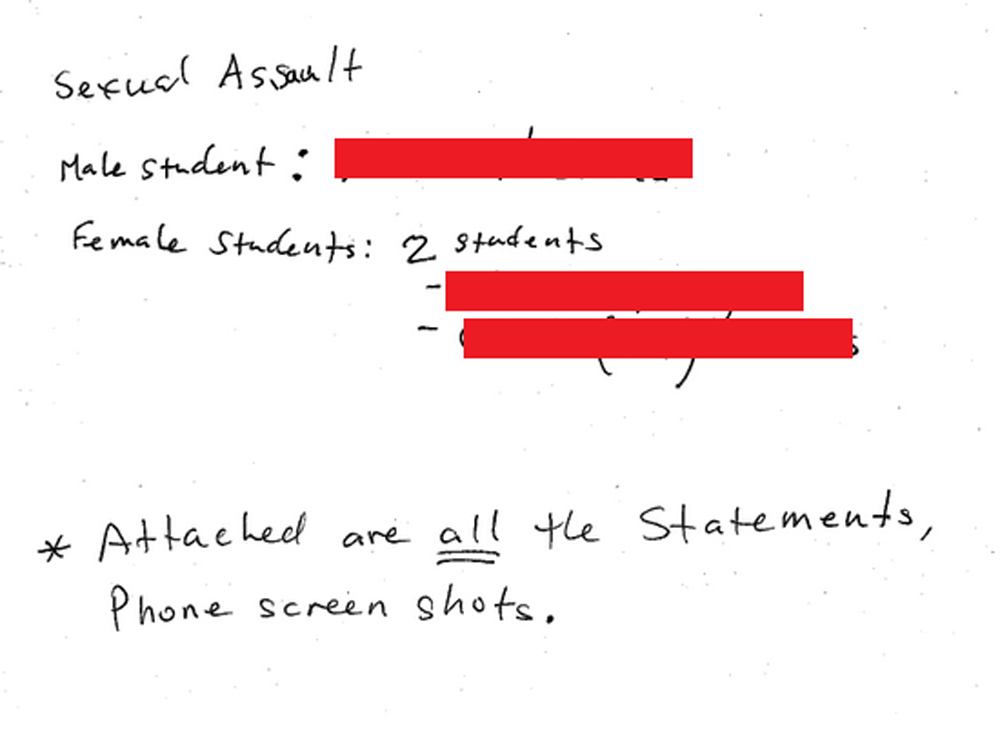 Sexual Assault
Male student :
Female Students: 2 students
-
-
* Attached are all the Statements,
Phone screen shots.